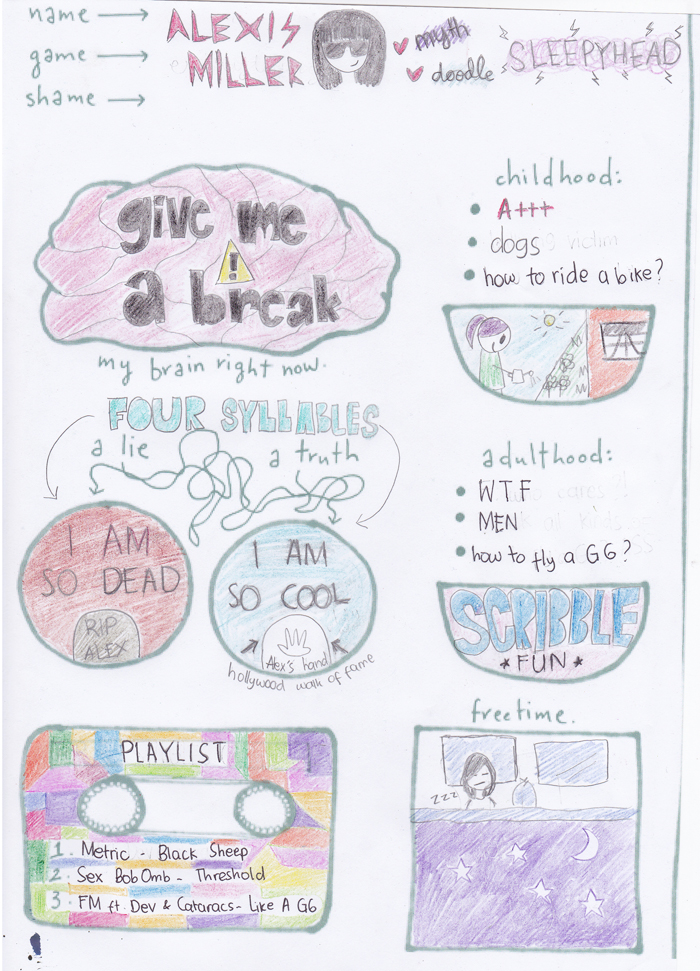 name
game
shame
ALEXIS
MILLER
myth
doodle
SLEEPYHEAD
give me
!
a break
my brain right now.
childhood:
A+++
dogs
how to ride a bike?
FOUR SYLLABLES
a lie
a truth
I AM
SO DEAD
RIP
ALEX
I AM
SO COOL
Alex's hand
hollywood walk of fame
adulthood:
WTF
MEN
how to fly a G6?
SCRIBBLE
★ FUN ★
freetime.
zzz
PLAYLIST
1. Metric - Black Sheep
2. Sex BobOmb - Threshold
3. FM ft. Dev & Cataracs - Like A G6